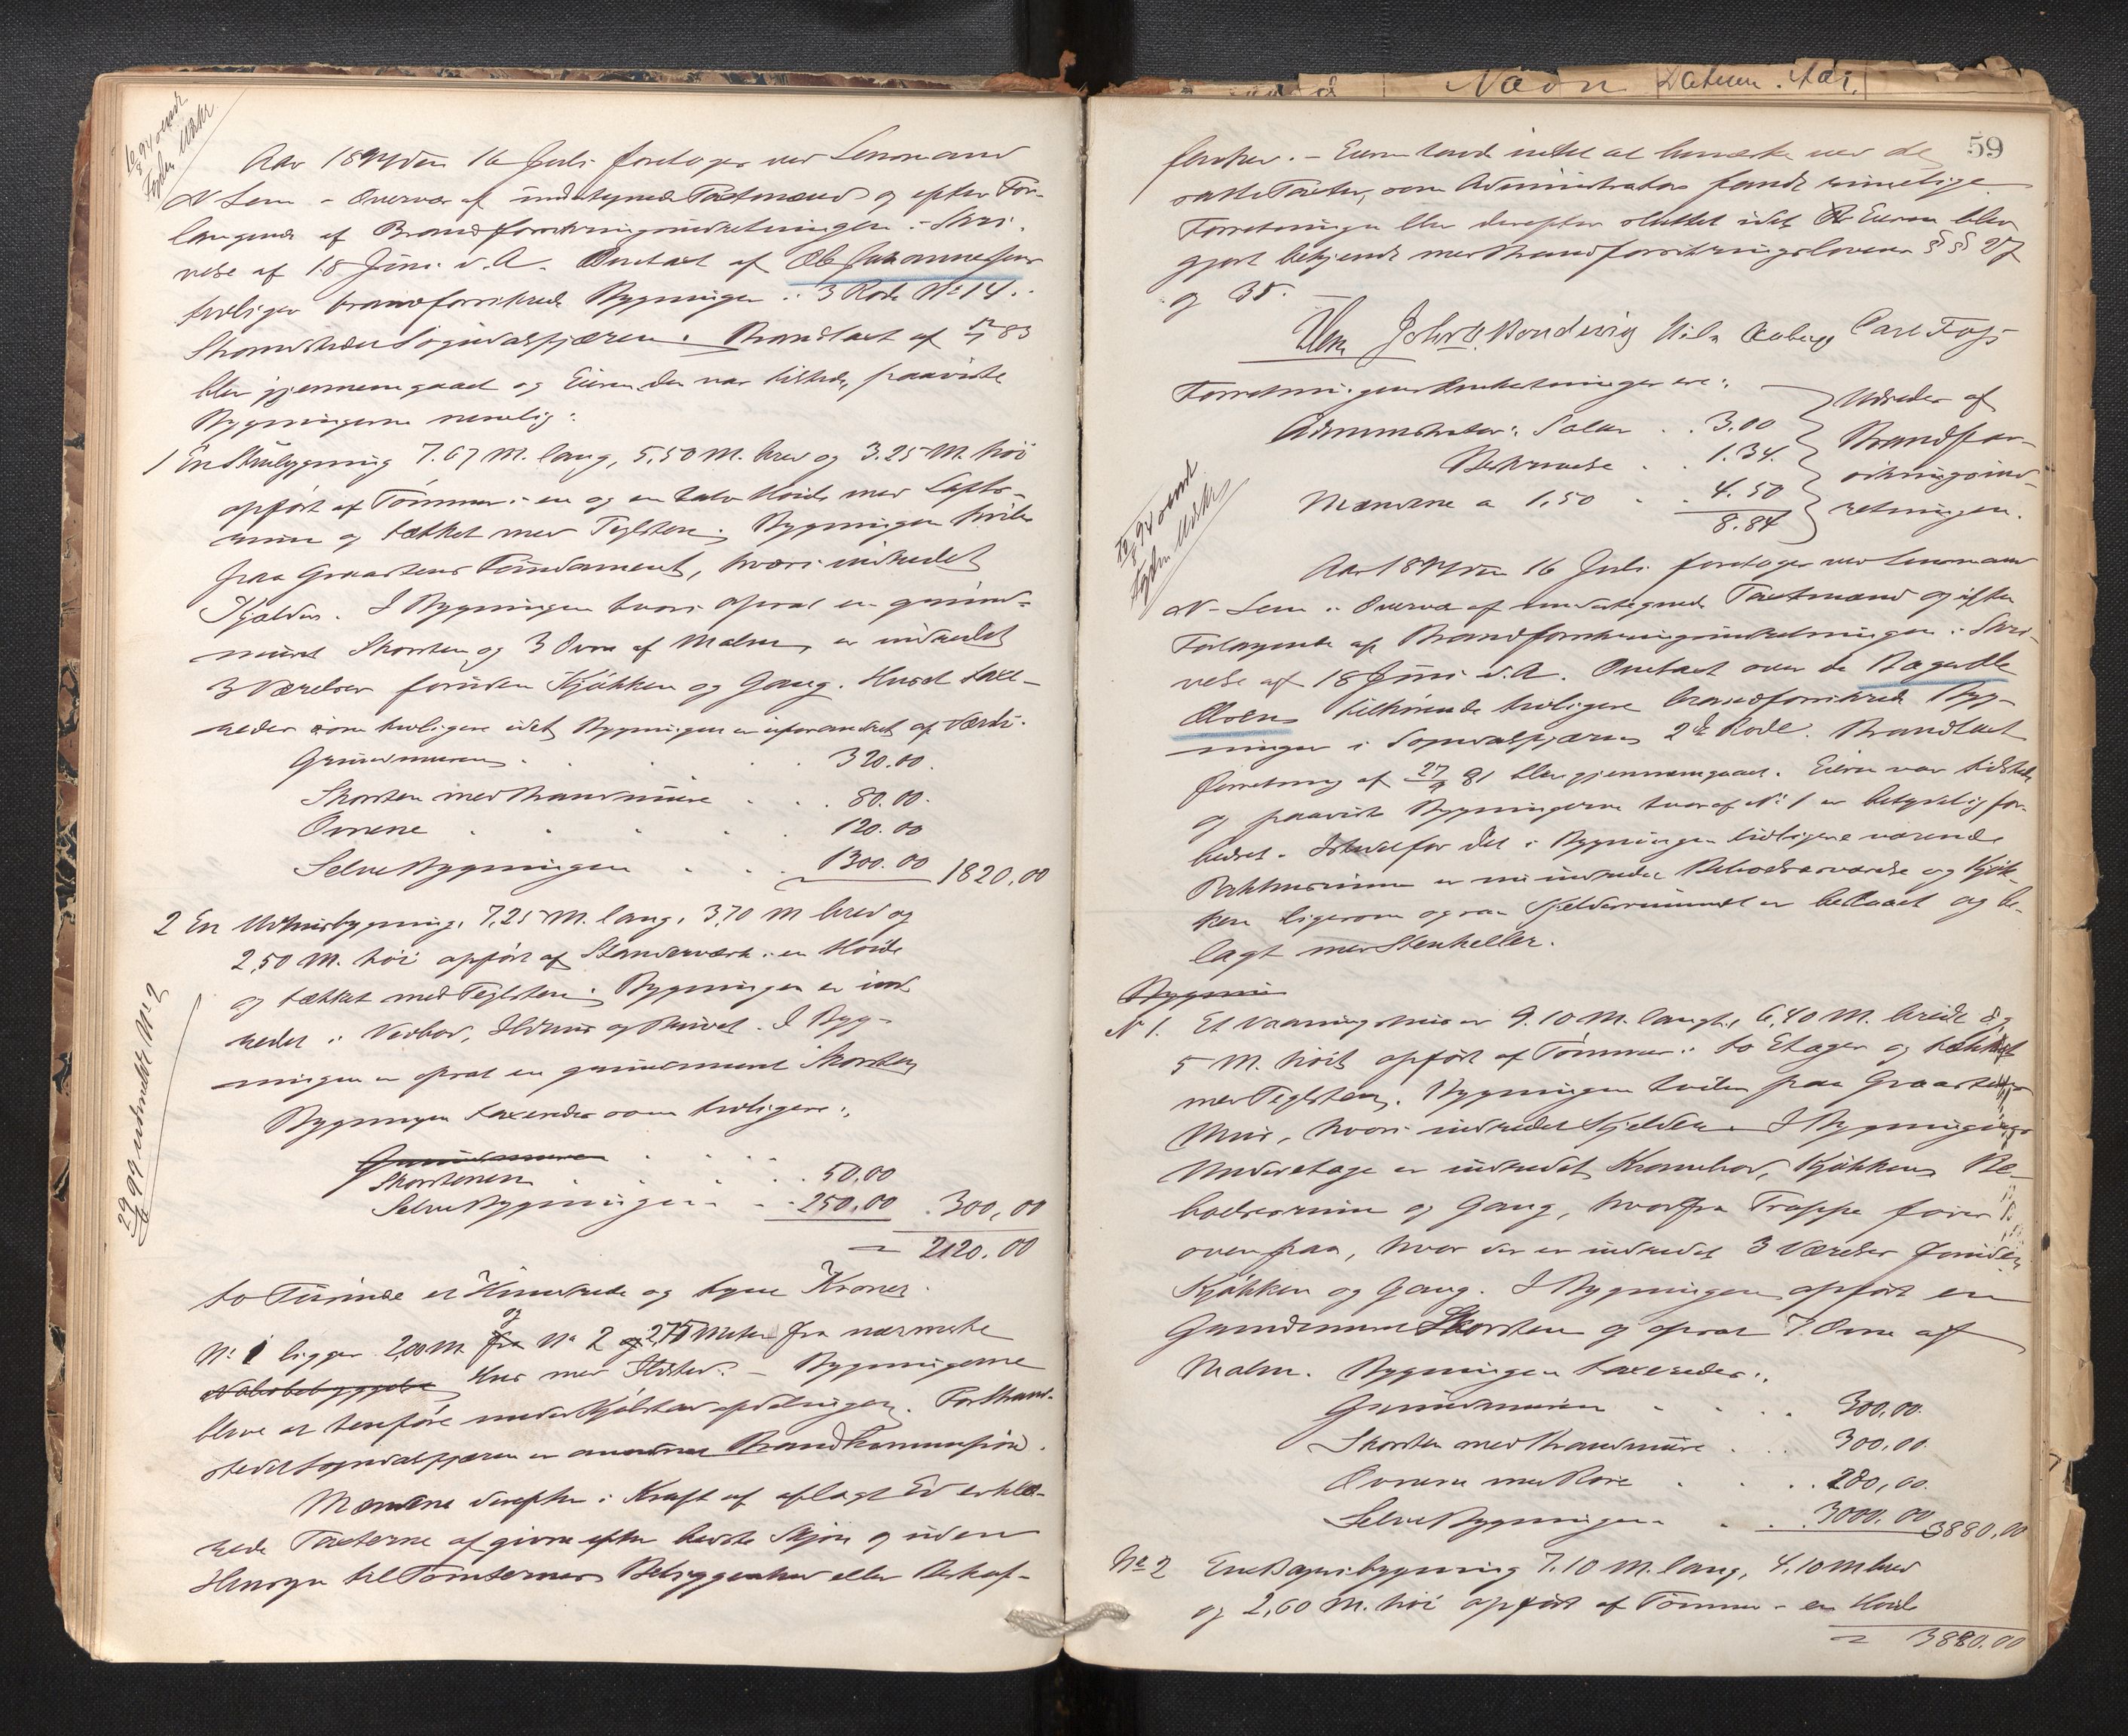 12/8 94 sendt
Fogden Udskr
Aar 1894 den 16 Juli foretoges ved Lensmand
N Lem i Overvær af undertegnede Taxtmænd og efter For-
langende af Brandforsikringsindretningen i Skri-
velse af 18 Juni d. A. Omtaxt af Ole Johannesens
tidligere brandforsikrede Bygninger i 3 Rode No 14 i
Strandstedet Sogndalsfjæren. Brandtaxt af 83
blev gjennemgaaet og Eieren, der var tilstede, paaviste
Bygningerne nemlig:
1 En Stuebygning 7.67 M. lang, 5,50 M. bred og 3.25 M. høi
opført af Tømmer i en og en halv Høide med Lofts-
rum og tækket med Teglsten. Bygningen hviler
paa Graastens Fundament, hvori indredet
Kjælder. I Bygningen hvori opsat en grund-
muret Skorsten og 3 Ovne af Malm, er indredet
3 Værelser foruden Kjøkken og Gang. Huset taxe-
redes som tidligere idet Bygningen er uforandret af Værdi.
Grundmuren . . . . 320.00.
Skorsten med Brandmure . . . 80.00.
Ovnene . . . . . 120.00
Selve Bygningen . . . 1300.00 1820,00
2 En Udhusbygning, 7,25 M. lang, 3,70 M bred og
2,50 M. høi opført af Standerværk i en Høide
og tækket med Teglsten. Bygningen er ind-
redet i Vedbod, Ildhus og Privet. I Byg-
ningen er opsat en grundmuret Skorsten
Bygningen taxeredes som tidligere:
Grundmuren . . .
Skorstenen . . . . 50,00
Selve Bygningen . . 250,00 . 300,00
= 2120.00
29/6 99 udmeldt No 2
to Tusinde et Hundrede og tyve Kroner.
No 1 ligger 2,00 M fra og No 2 og 2,75 Meter fra nærmeste
Nabobebyggelse Hus med Ildsted. – Bygningerne
blive at henføre under Kjøbstadafdelingen. For Strand-
stedet Sogndalsfjæren er anordnet Brandkommission.
Mændene derefter i Kraft af aflagt Ed erklæ-
rede Taxterne afgivne efter bedste Skjøn og uden
Hensyn til Tomternes Beliggenhed eller Beskaf-
59
fenhed. – Eieren havde intet at bemærke ved de
satte Taxter, som Administrator fandt rimelige.
Forretningen blev derefter sluttet idet Eieren blev
gjort bekjendt med Brandforsikringslovens §§ 27
og 35.
NLem John H. Bondevig Nils Aaberg Carl Fogs
Forretningens Omkostninger ere:
Administrators Salær . . 3.00
Bekreftelse . . 1.34.
Mændene a 1,50 . . 4.50
8.84
Udredes af
Brandfor-
sikringsind-
retningen.
12/8 94 sendt
Fogden Udskr
Aar 1894 den 16 Juli foretoges ved Lensmand
N- Lem i Overvær af undertegnede Taxtmænd og efter
Forlangende af Brandforsikringsindretningen i Skri-
velse af 18 Juni d. A. Omtaxt over de Bager Ole
Olsen tilhørende tidligere brandforsikrede Byg-
ninger i Sogndalsfjærens 2de Rode. Brandtaxt
forretning af 27/9 81 blev gjennemgaaet. Eieren var tilstede
og paaviste Bygningerne hvoraf No 1 er betydelig for-
bedret. Istedetfor det i Bygningen tidligere værende
Pakhusrum er nu indredet Beboelsesværelse og Kjøk-
ken ligesom ogsaa Kjelderrummet er og be-
lagt med Stenheller.
Bygnin
N 1. Et Vaaningshus er 9.10 M. langt, 6,40 M. bredt og
5 M. høit opført af Tømmer i to Etager og tækket
med Teglsten. Bygningen hviler paa Graastens
Mur, hvori indredet Kjelder. I Bygningens
Underetage er indredet Krambod, Kjøkken, Be-
boelsesrum og Gang, hvorfra Trappe fører
ovenpaa, hvor der er indredet 3 Værelser foruden
Kjøkken og Gang. I Bygningen opført en
Grundmuret Skorsten og opsat 7 Ovne af
Malm. Bygningen taxeredes:
Grundmuren . . . . 300,00.
Skorsten med Brandmure . . . 300,00.
Ovnene med Rør . . . 280,00.
Selve Bygningen . . 3000.00 3880,00
No 2 En Bageribygning 7.10 M. lang, 4,10 M bred
og 2,60 M. høi opført af Tømmer i en Høide
= 3880.00
Navn Datum. Aar.